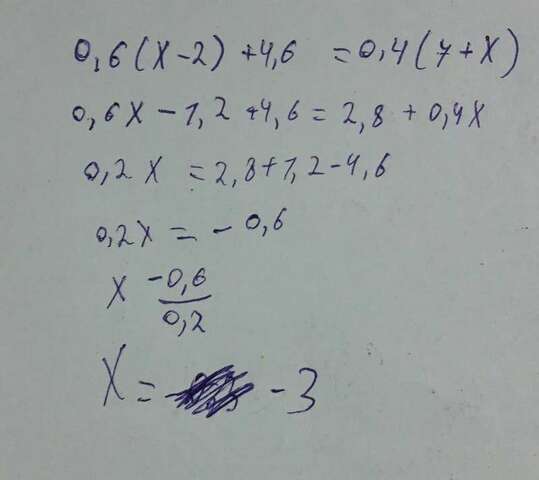 0,6(x-2)+4,6 =0,4(7+x)
0,6x-1,2+4,6=2,8+0,4x
0,2x =2,8+1,2-4,6
0,2x = -0,6
x -0,6/0,2
x= -3